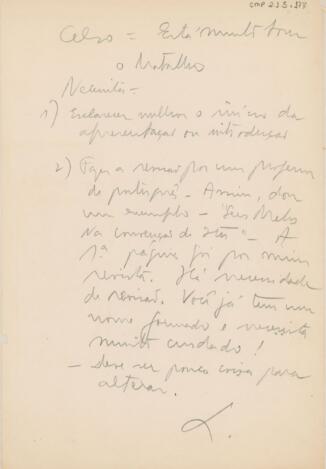 CMP 2.1.9.
Celso = Está muito bom
o trabalho
Necessita =
1) Esclarecer melhor o início da
apresentação ou introdução
2) Faça a revisão por um professor
de português - Assim, dou
um exemplo -
na convenção de Itú" - A
1ª página foi por mim
revista. Há necessidade
de revisão. Você já tem um
nome formado e necessita
muito cuidado!
- Deve ser pouca coisa para
alterar.